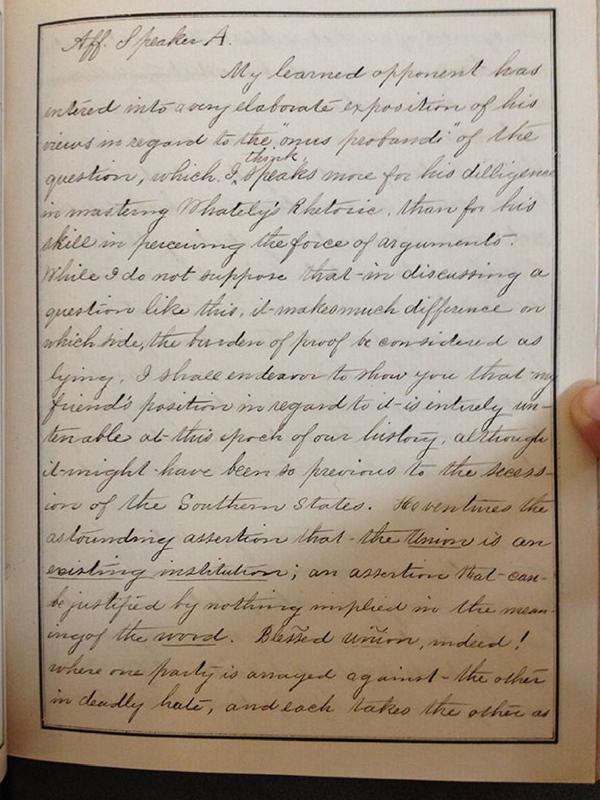 Aff. Speaker A.
My learned opponent has
entered into a very elaborate exposition of his
views in regard to the "onus probandi" of the
think
question, which, I, speaks more for his dilligence
in mastering Whately's Rhetoric, than for his
skill in perceiving the force of arguments.
While I do not suppose that in discussing a
question like this, it makes much difference on
which side, the burden of proof be considered as
lying, I shall endeavor to show you that my
friend's position in regard to it is entirely un-
tenable at this epoch of our history, although
it might have been so previous to the secess-
ion of the Southern States. He ventures the
astounding assertion that the Union is an
existing institution; an assertion that can-
be justified by nothing implied in the mean-
ing of the word. Blessed union, indeed!
where one party is arrayed against the other
in deadly hate, and each takes the other as